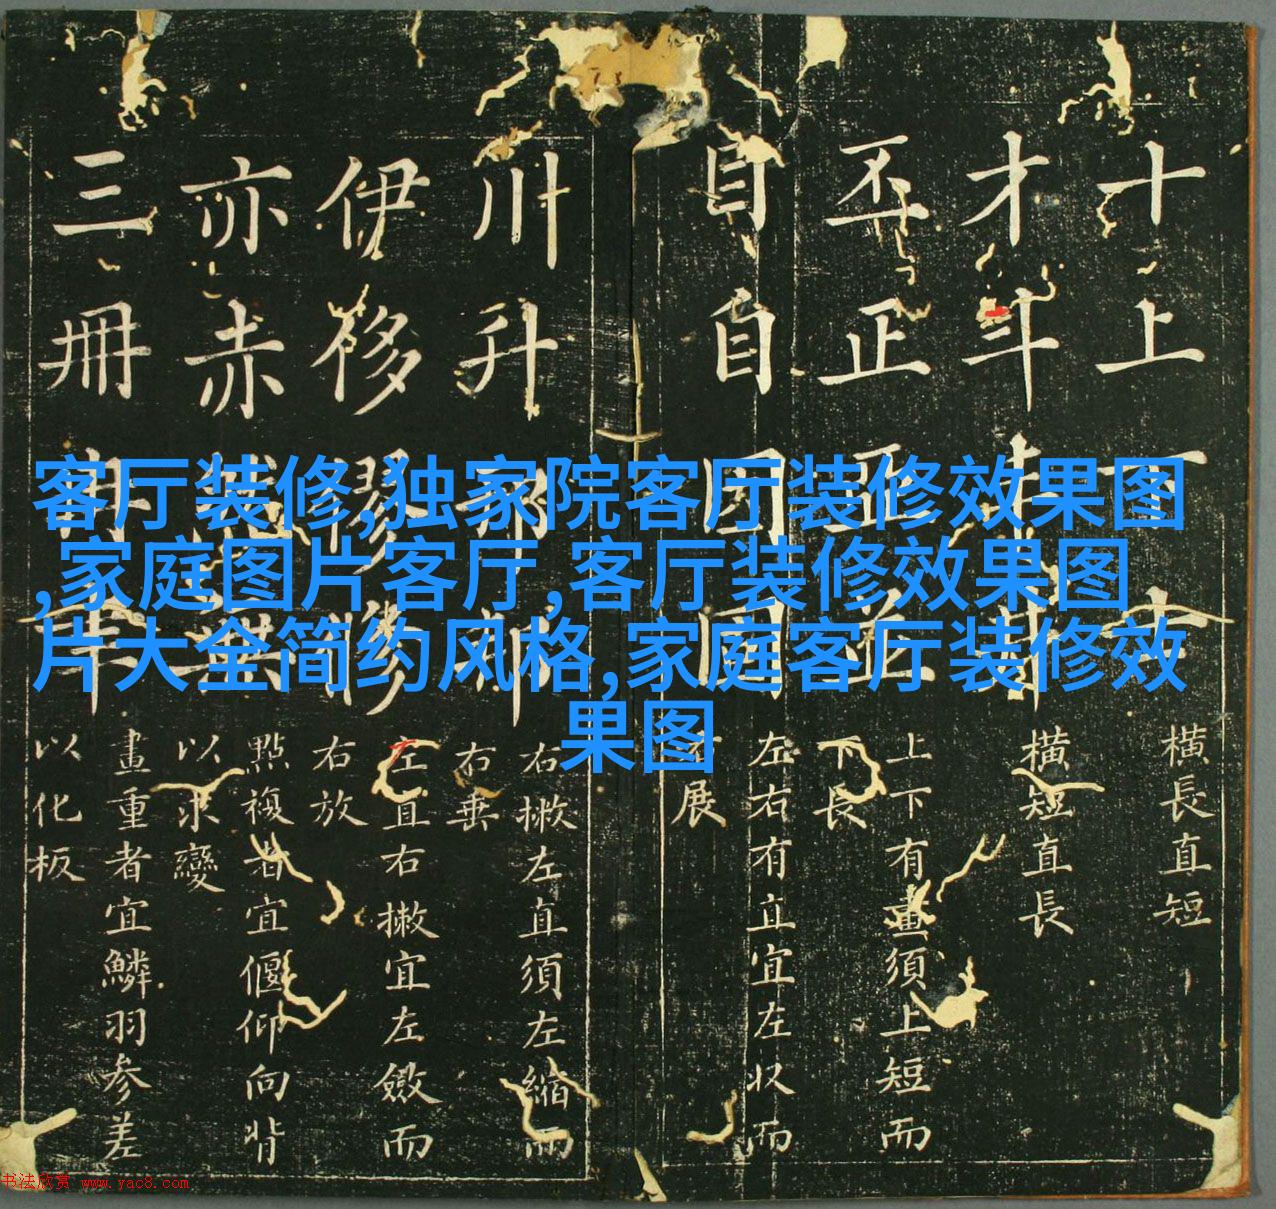 客厅装修,独家院客厅装修效果图
,家庭图片客厅,客厅装修效果图
片大全简约风格,家庭客厅装修效
果图
十上下
橫長直短
才斗
橫短直長
丕正亞
上下有畫須上短而
下長
目自因
左右有直宜左收而
右展
川升
右撇左直須左縮而
右垂
伊移
左直右撇宜左斂而
右放
亦赤
點複者宜偃仰向背
以求變
三冊
畫重者宜鱗羽參差
以化板
书法欣赏 www.yac8.com